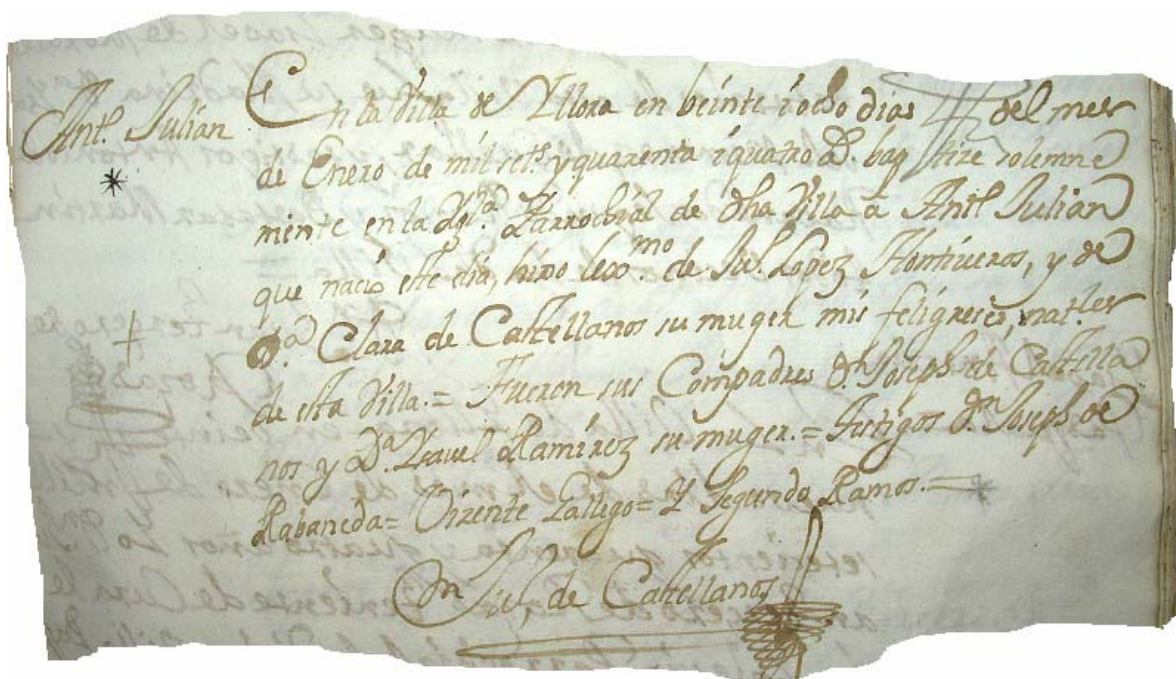 Antº Julian
En la Villa de Yllora en beinte i ocho dias del mes
de Enero de mil setsº y quarenta i quatro aºˢ. baptize solemne
mente en la Yglª Parrochial de dha Villa a Antº Julian
que nacio este dia, hixo lexmo de Juº Lopez Hontiveros, y de
Dª Clara de Castellanos su muger mis feligreses, natles
de esta Villa.= Fueron sus Compadres Dn Joseph de Castella
nos y Dª Ysavel Ramirez su muger.= Testigos Dn Joseph de
Rabaneda= Vizente Gallego= Y Segundo Ramos.=
Dn Juº de Castellanos